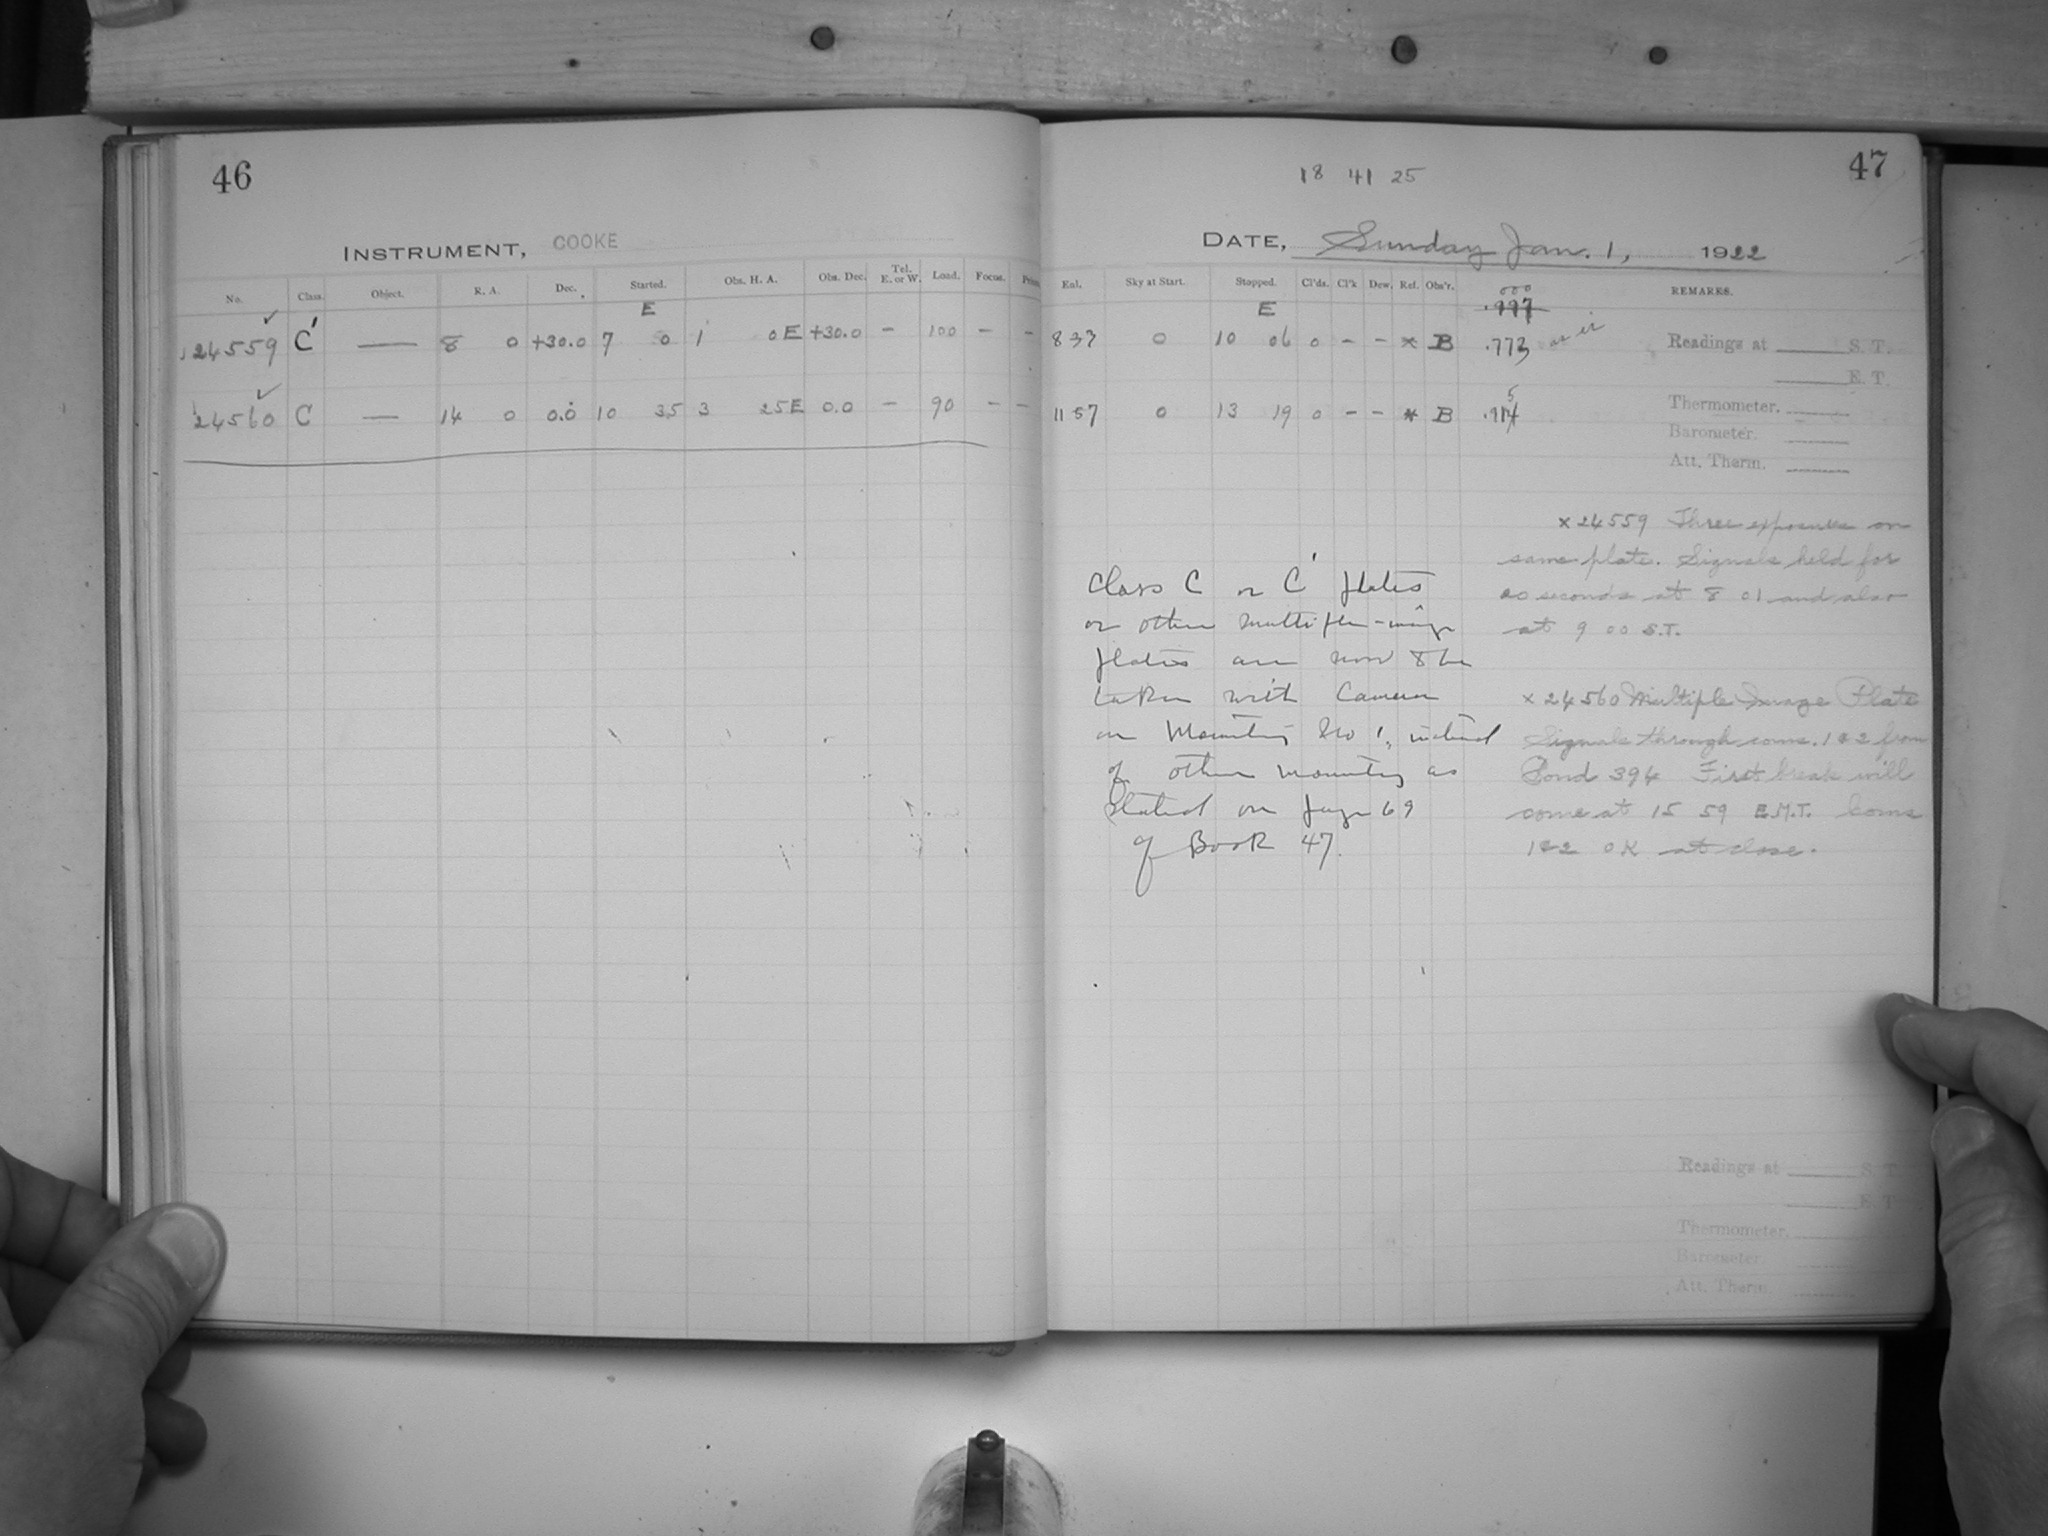 46
INSTRUMENT, COOKE
No. Class. Object. R. A. Dec. Started. Obs. H. A. Obs. Dec. Tel. E. or W. Load. Focus.
E
24559 C' — 8 0 +30.0 7 0 1 0 E +30.0 – 100 – –
24560 C — 14 0 0.0 10 35 3 25 E 0.0 – 90 – –
47
18 41 25
DATE, Sunday Jan. 1, 1922
Eal. Sky at Start. Stopped. Cl'ds. Cl'k Dew. Ref. Obs'r. REMARKS.
E 000
.997
837 0 10 06 0 – – * B .773
1157 0 13 19 0 – – * B
Readings at S. T.
E. T.
Thermometer.
Barometer.
Att. Therm.
× 24559 Three exposures on
same plate. Signals held for
20 seconds at 8 01 and also
at 9 00 S.T.
× 24560 Multiple Image Plate
Signals through coms. 1 & 2 from
Bond 394 First break will
come at 15 59 E.M.T. Coms
1 & 2 OK at close.
Class C or C' plates
or other multiple-image
plates are now to be
taken with Camera
on Mounting No 1, instead
of other mounting as
stated on page 69
of Book 47.
Readings at S. T.
E. T.
Thermometer.
Barometer.
Att. Therm.